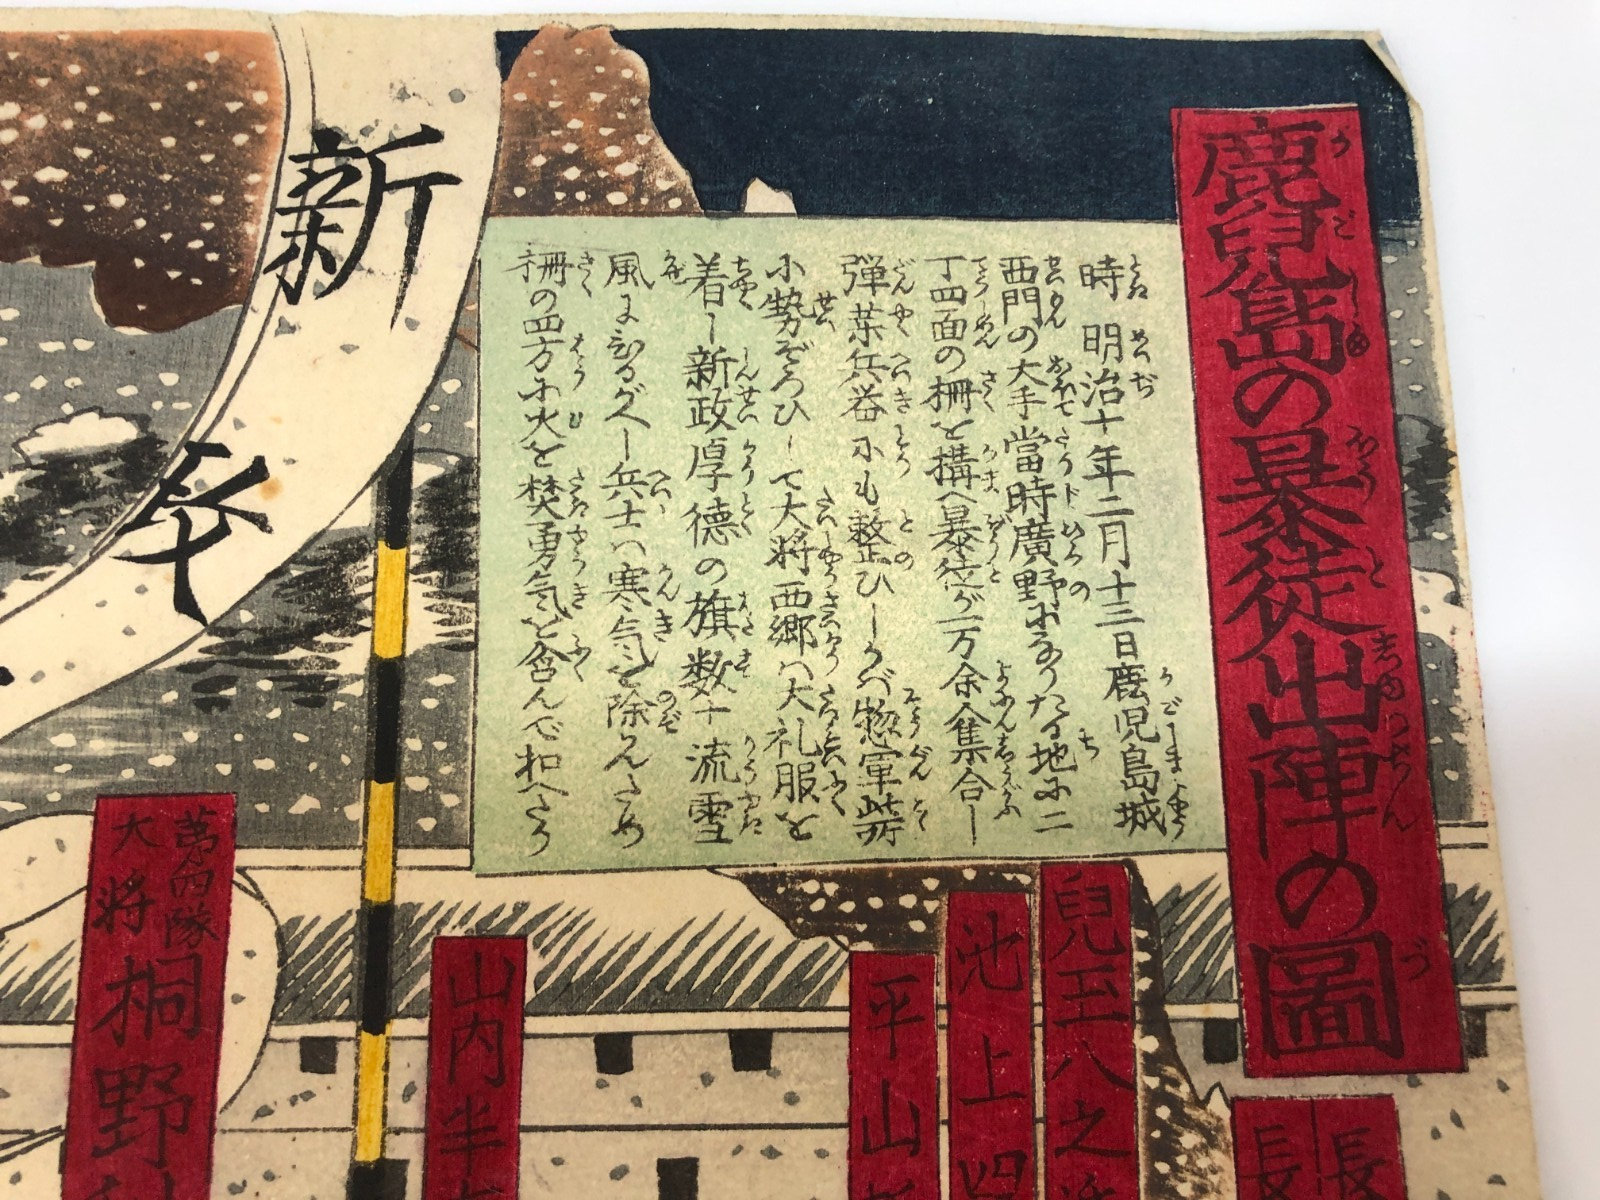 鹿兒島の暴徒出陣の圖
時明治十年二月十三日鹿児島城
西門の大手當時廣野になりたる地に二
丁四面の柵を構へ暴徒が一万余集合し
弾薬兵器にも整ひしかバ惣軍
小勢ぞろひして大将西郷ハ大礼服を
着し新政厚德の旗数十流雪
風にひるがへし兵士ハ寒気を除んため
柵の四方に火を焚勇気を含んで扣へたり
新
兒玉八之
池上四
平山
山内半
第四隊
大将
桐野
長
長